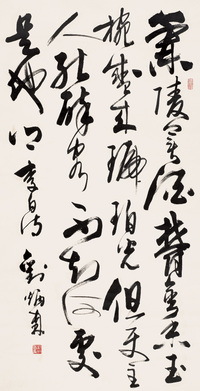 蘭陵美酒鬱金香玉
椀盛来琥珀光但使主
人能醉客不知何處
是他鄉 李白詩 劉炳森